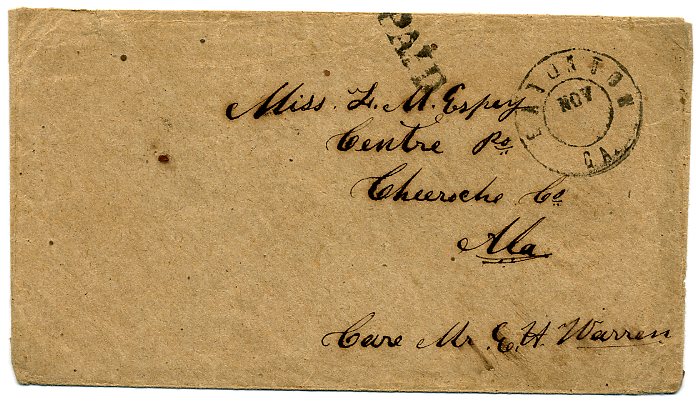 PAID
EATONTON
NOV
GA.
Miss. L. M. Espey
Centre Po
Cheeroche Co
Ala
Care Mr. E. H. Warren